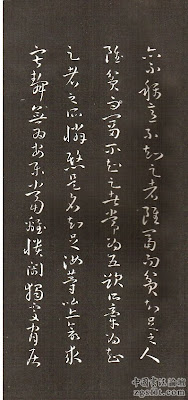 亦不稱意不知足者雖富而貧知足之人
雖貧而富不知足者常為五欲所牽為知
足者之所憐愍是名知足汝等比丘若求
寂靜無為安樂當離憒鬧獨處閑居
中國書法論壇